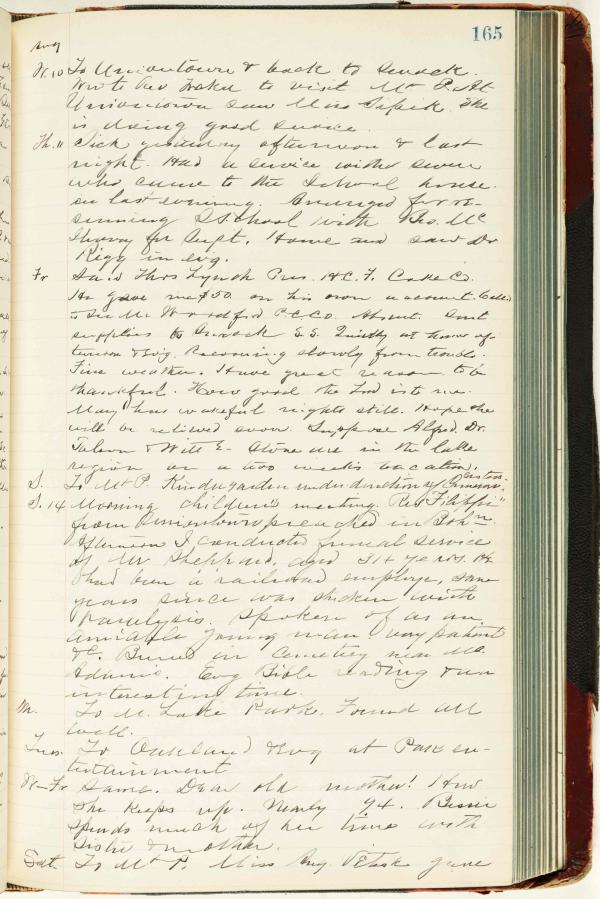 165
Aug
W. 10 To Uniontown & back to
Wrote Rev to visit Mt P. At
Uniontown saw Miss She
is doing good service.
Th. 11 Sick yesterday afternoon & last
night. Had a service with seven
who came to the School house
on last evening. Arranged for re-
suming S. School with Geo. Mc
for Supt. Home and saw Dr
Rigg in evg.
Fr Saw Thos Lynch Pres. H.C.F. Coke Co.
He gave me $50. on his own account. Called
to see Mr W. P.C.Co. Absent. Sent
supplies to S.S. Quietly at home af-
ternoon & Evg. Recovering slowly from trouble.
Fine weather. Have great reason to be
thankful. How good the Lord is to me.
May has wakeful nights still. Hope she
will be relieved soon. Suppose Alfred, Dr.
& Will E. Stone are in the lake
region on a two weeks vacation.
S. To Mt P. Kindergarten under direction of
S. 14 Morning children's meeting. Rev "Filippi"
from Uniontown preached in Bohn
Afternoon I conducted funeral service
of Mr Sheppard, aged 34 years. He
had been a railroad employe, some
years since was stricken with
Paralysis. Spoken of as an
amiable young man very patient
&c. Buried in cemetery near Mc
Adams. Evg Bible reading & an
interesting time.
Mn. To M. Lake Park. Found all
well.
Tues. To Oakland & Evg at Park en-
tertainment
W-Fr Same. Dear old mother! How
she keeps up. Nearly 94. Bessie
spends much of her time with
sister & mother.
Sat. To Mt P. Miss gave